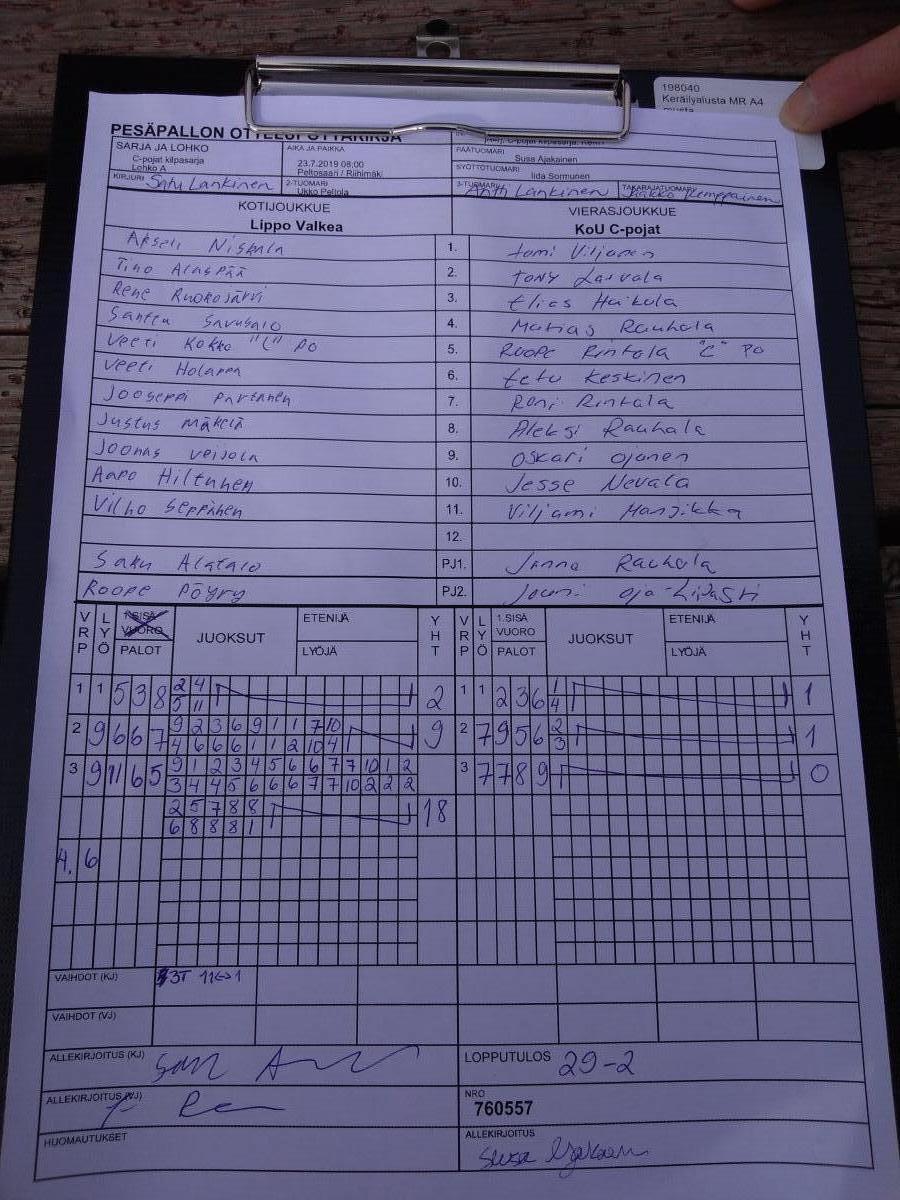 198040
Keräilyalusta MR A4
musta
PESÄPALLON OTTELUPÖYTÄKIRJA
SARJA JA LOHKO
C-pojat kilpasarja
Lohko A
AIKA JA PAIKKA
23.7.2019 08:00
Peltosaari / Riihimäki
PÄÄTUOMARI
Susa Ajakainen
SYÖTTÖTUOMARI
Iida Sormunen
KIRJURI Satu Lankinen
2-TUOMARI
Ukko Peltola
3-TUOMARI Antti Lankinen
TAKARAJATUOMARI Jaakko Kemppainen
KOTIJOUKKUE VIERASJOUKKUE
Lippo Valkea KoU C-pojat
Akseli Niskala 1. Tomi Viljanen
Tino Alaspää 2. Tony Laivala
Rene Ruokojärvi 3. Elias Haikola
Santtu Savusalo 4. Matias Rauhala
Veeti Kokko "C" PO 5. Roope Rintala "C" PO
Veeti Holappa 6. Eetu Keskinen
Jooseppi Partanen 7. Roni Rintala
Justus Mäkelä 8. Aleksi Rauhala
Joonas Veijola 9. Oskari Ojanen
Aapo Hiltunen 10. Jesse Nevala
Vilho Seppänen 11. Viljami Mansikka
12.
Saku Alatalo PJ1. Janne Rauhala
Roope Pöyry PJ2. Jouni Oja-Lipasti
VRP LYÖ 1.SISÄ VUORO PALOT JUOKSUT ETENIJÄ LYÖJÄ YHT VRP LYÖ 1.SISÄ VUORO PALOT JUOKSUT ETENIJÄ LYÖJÄ YHT
1 1 5 3 8 2 4 2 1 1 2 3 6 1 1
5 11 4
2 9 6 6 7 9 2 3 6 9 1 1 7 10 9 2 7 9 5 6 2 1
4 6 6 6 1 1 2 10 4 3
3 9 11 6 5 9 1 2 3 4 5 6 6 7 7 10 1 2 3 7 7 8 9 0
3 4 4 5 6 6 6 7 7 10 2 2 2
2 5 7 8 8 18
6 8 8 8 1
4. 6
VAIHDOT (KJ) 3T 11<->1
VAIHDOT (VJ)
ALLEKIRJOITUS (KJ) LOPPUTULOS 29-2
ALLEKIRJOITUS (VJ) NRO
760557
HUOMAUTUKSET ALLEKIRJOITUS
Susa Ajakainen